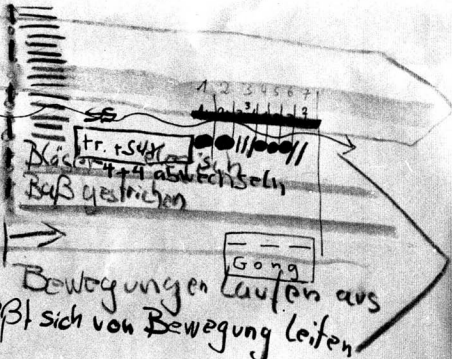 1 2 3 4 5 6 7
tr. +
Bläser 4+4 abwechseln
Baß gestrichen
Gong
Bewegungen laufen aus
ßt sich von Bewegung leiten